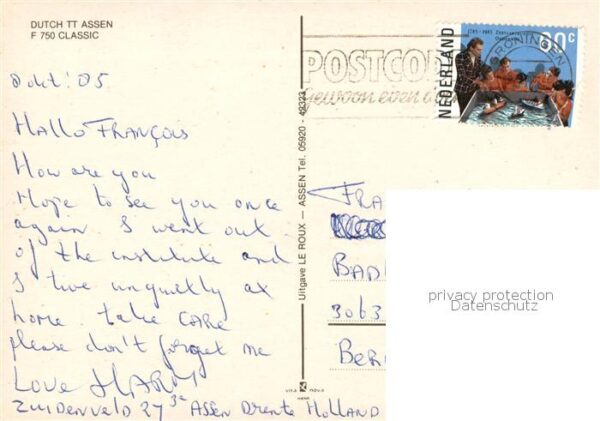 DUTCH TT ASSEN
F 750 CLASSIC
Hallo François
How are you
Hope to see you once
again. I went out
of the institute and
I live unquietly at
home. take care
please don't forget me
Love HARM
Zuidenveld 27 Assen Drente Holland
Uitgave LE ROUX — ASSEN Tel. 05920 - 49323
POSTCO
gewoon even
NEDERLAND
60c
1785-1985
GRONINGEN
FRA
BAD
3063
BER
privacy protection
Datenschutz